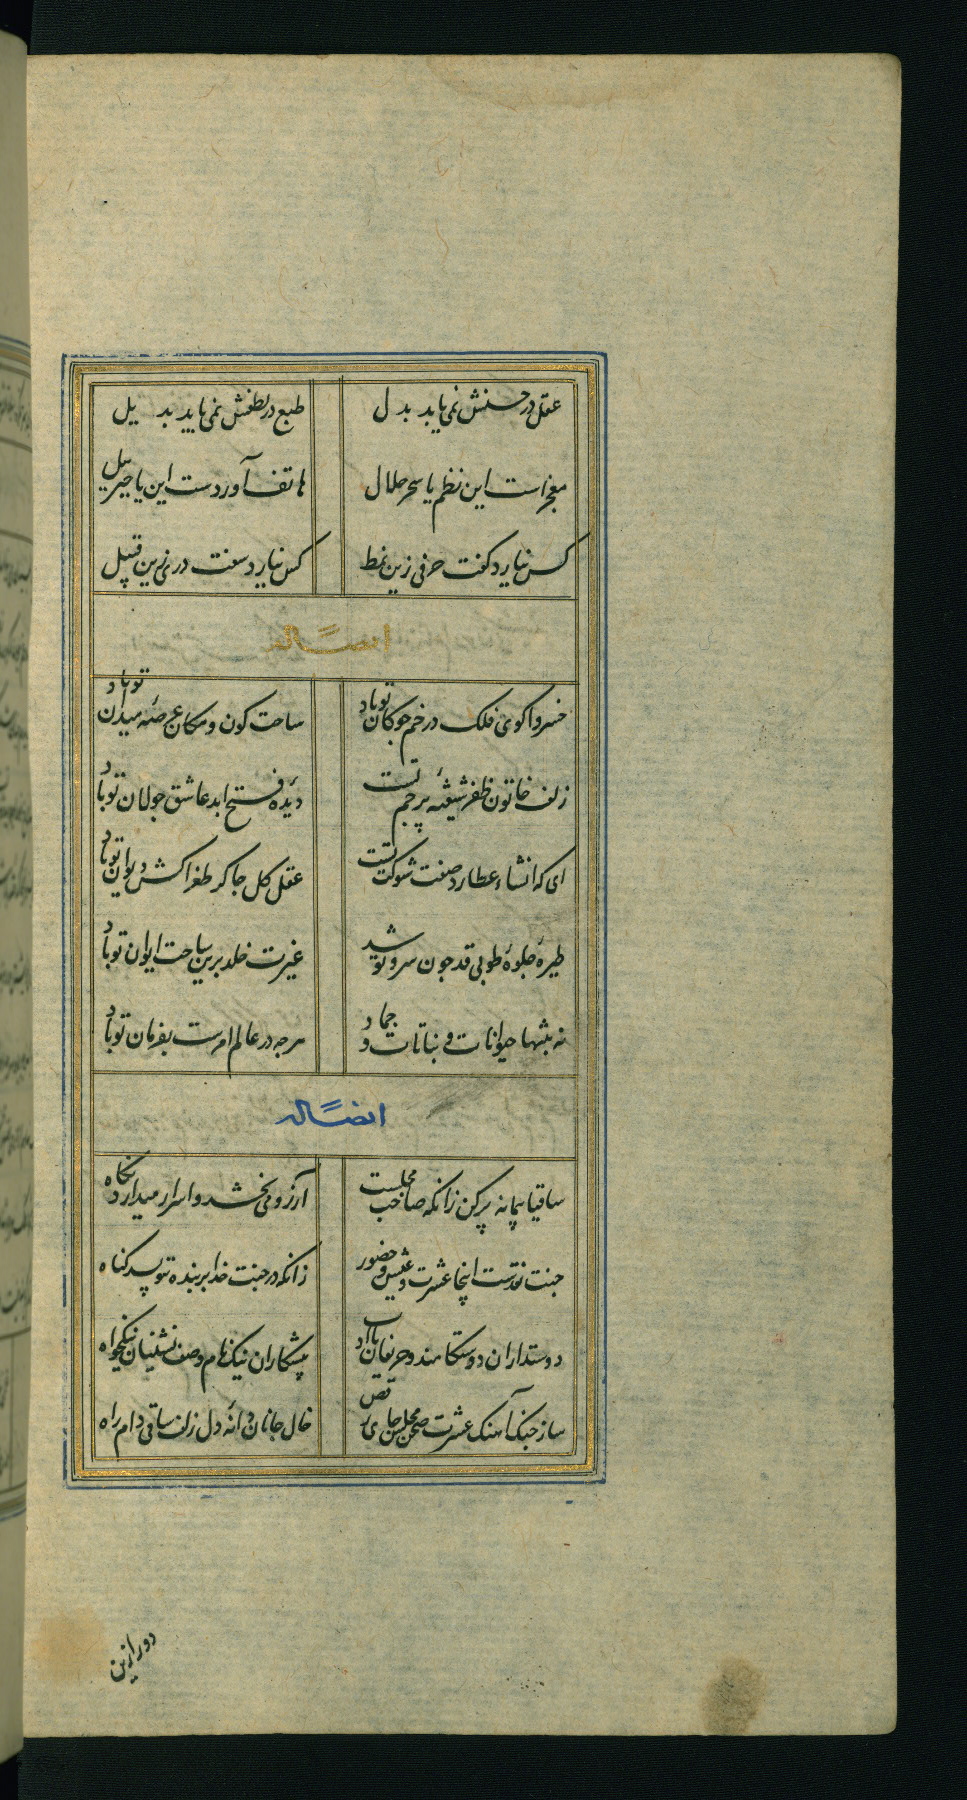 عقل در حسنش نمی یابد بدل
طبع در لطفش نمی یابد بدیل
معجزاست این نظم یا سحر حلال
هاتف آوردست این یا جبرییل
کس نیارد گفت حرفی زین نمط
کس نیارد سفت دری زین قبیل
ایضاً له
خسروا کوی فلک در خم چوکان تو باد
ساحت کون و مکان عرصهٔ میدان تو باد
زلف خاتون ظفر شیفتهٔ پرچم تست
دیدهٔ فتح ابد عاشق جولان تو باد
ای که انشاء عطارد صفت شوکت تست
عقل کل چاکر طغراکش دیوان تو باد
طیرهٔ جلوهٔ طوبی قد چون سرو تو شد
غیرت خلد برین ساحت ایوان تو باد
نه بتنها حیوانات و نباتات و جماد
هرچه در عالم امرست بفرمان تو باد
ایضاً له
ساقیا پیمانه پر کن زانکه صاحب مجلست
آرزو می بخشد و اسرار میدارد نکاه
جنت نقدست اینجا عشرت و عیش و حضور
زانکه در جنت خدا بر بنده ننویسد کناه
دوستداران دوستکامند و حریفان باادب
پیشکاران نیک نام و صف نشینان نیکخواه
ساز چنک آهنک عشرت صحن مجلس جای رقص
خال جانان دانهٔ دل زلف ساقی دام راه
دور ازین